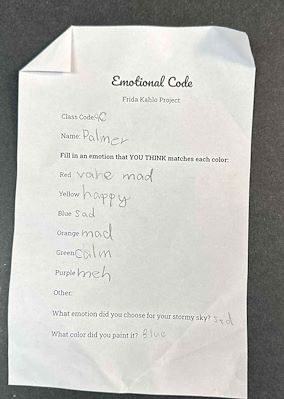 Emotional Code
Frida Kahlo Project
Class Code: 4C
Name: Palmer
Fill in an emotion that YOU THINK matches each color:
Red vare mad
Yellow happy
Blue sad
Orange mad
Green calm
Purple meh
Other:
What emotion did you choose for your stormy sky? sad
What color did you paint it? Blue